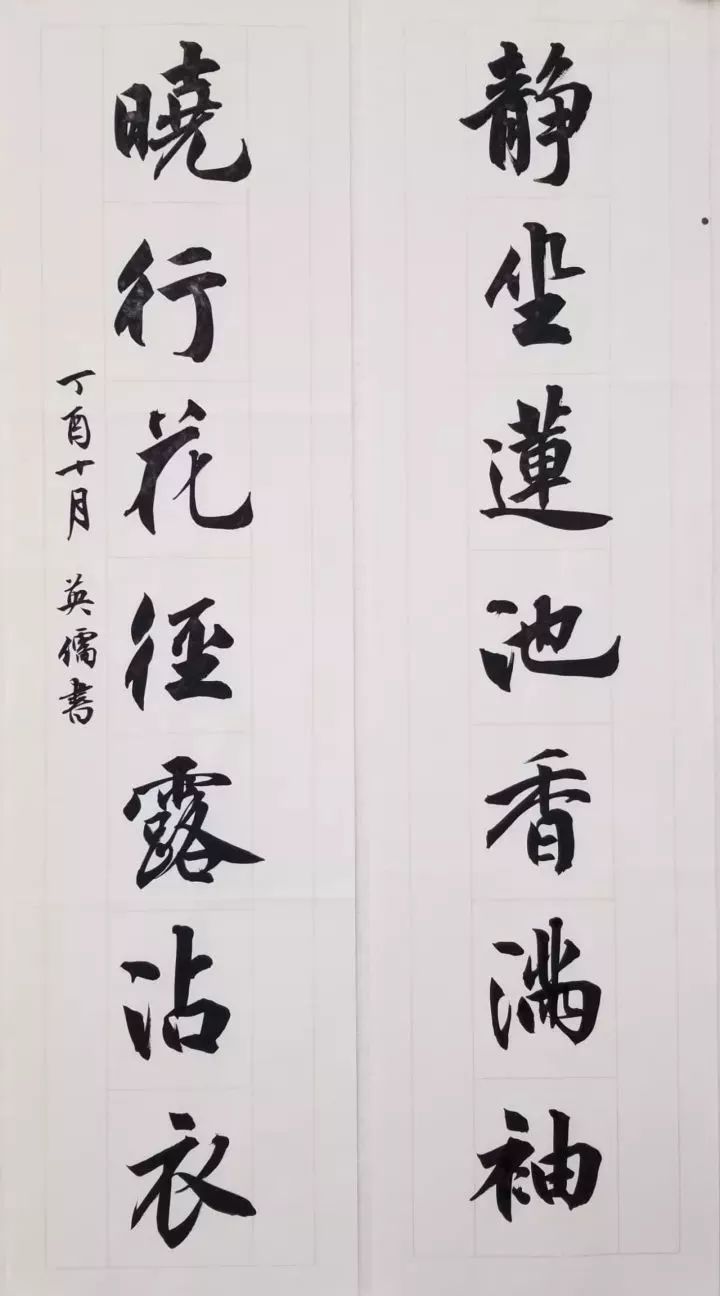 静坐蓮池香滿袖
曉行花徑露沾衣
丁酉十月 英儒書